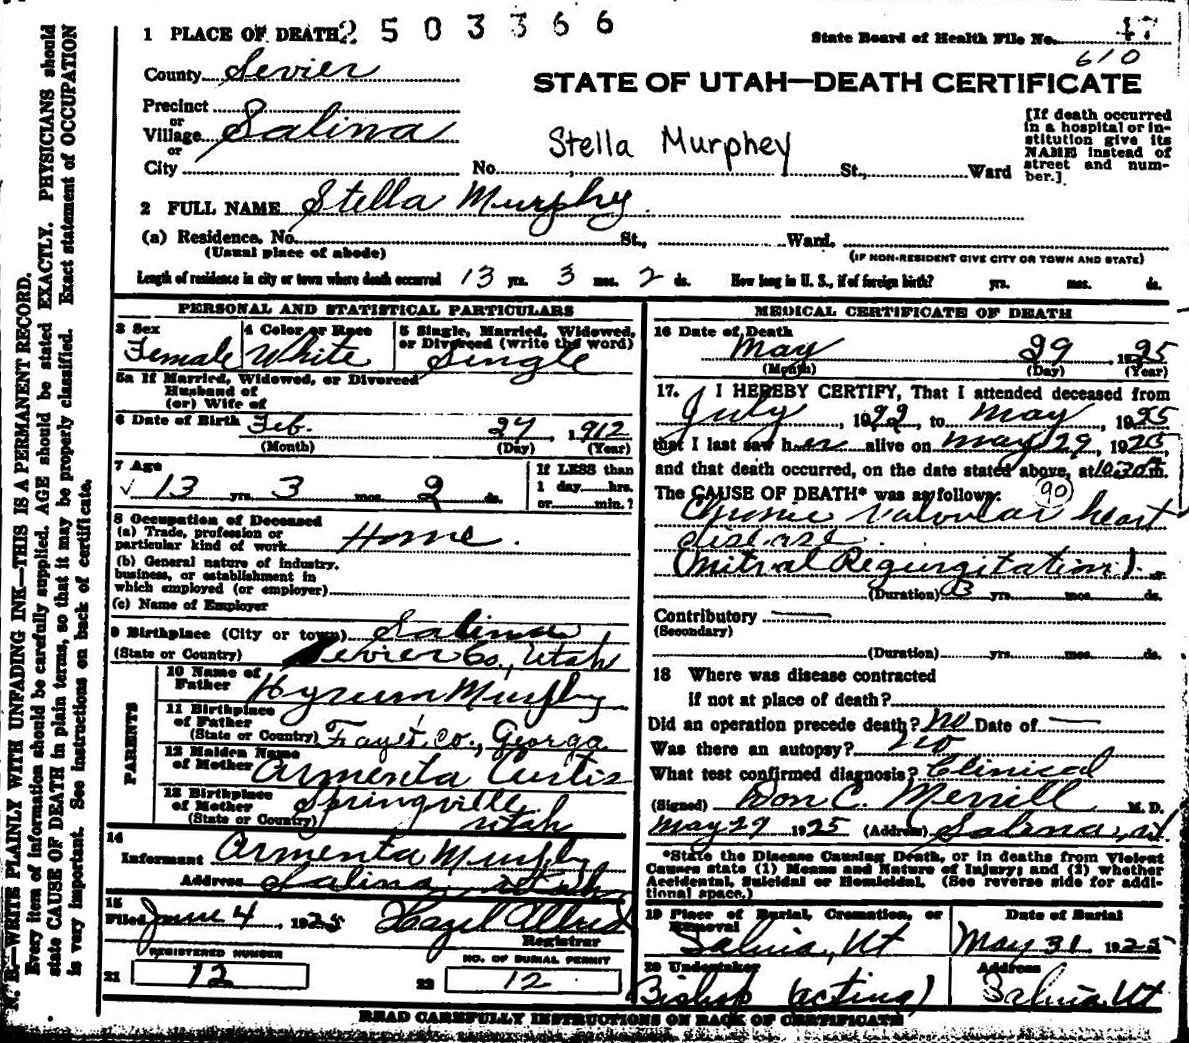 1 PLACE OF DEATH 2503366
State Board of Health File No. 47
610
County Sevier
STATE OF UTAH—DEATH CERTIFICATE
Precinct
or
Village Salina
or
City
Stella Murphey
No. St., Ward
[If death occurred in a hospital or in-
stitution give its
NAME instead of
street and num-
ber.]
2 FULL NAME Stella Murphy
(a) Residence, No. St., Ward.
(Usual place of abode)
(IF NON-RESIDENT GIVE CITY OR TOWN AND STATE)
Length of residence in city or town where death occurred 13 yrs. 3 mos. 2 ds. How long in U. S., if of foreign birth? yrs. mos. ds.
PERSONAL AND STATISTICAL PARTICULARS
3 Sex Female
4 Color or Race White
5 Single, Married, Widowed,
or Divorced (write the word)
Single
5a If Married, Widowed, or Divorced
Husband of
(or) Wife of
6 Date of Birth Feb. 27, 1912
(Month) (Day) (Year)
7 Age
13 yrs. 3 mos. 2 ds.
If LESS than
1 day hrs.
or min.?
8 Occupation of Deceased
(a) Trade, profession or
particular kind of work Home.
(b) General nature of industry,
business, or establishment in
which employed (or employer)
(c) Name of Employer
9 Birthplace (City or town) Salina
(State or Country) Sevier Co., Utah
PARENTS
10 Name of
Father Hyrum Murphy
11 Birthplace
of Father
(State or Country) Fayet. Co., Georga
12 Maiden Name
of Mother Armenta Curtis
13 Birthplace
of Mother
(State or Country) Springville Utah
14
Informant Armenta Murphy
Address Salina, Utah
15
Filed June 4, 1925 Hazel Allred
Registrar
REGISTERED NUMBER
21 12
NO. OF BURIAL PERMIT
22 12
MEDICAL CERTIFICATE OF DEATH
16 Date of Death
May 29, 1925
(Month) (Day) (Year)
17. I HEREBY CERTIFY, That I attended deceased from
July, 1922 to May, 1925
that I last saw her alive on May 29, 1925,
and that death occurred, on the date stated above, at 10.30 m.
The CAUSE OF DEATH* was as follows: 90
Chronic Valvular heart
disease.
(Mitral Regurgitation).
(Duration) 3 yrs. mos. ds.
Contributory
(Secondary)
(Duration) yrs. mos. ds.
18 Where was disease contracted
if not at place of death?
Did an operation precede death? No Date of
Was there an autopsy? No
What test confirmed diagnosis? Clinical
(Signed) Don C. Merrill M. D.
May 29 1925 (Address) Salina, Ut.
*State the Disease Causing Death, or in deaths from Violent
Causes state (1) Means and Nature of Injury; and (2) whether
Accidental, Suicidal or Homicidal. (See reverse side for addi-
tional space.)
19 Place of Burial, Cremation, or
Removal
Salina, Ut
Date of Burial
May 31 1925
20 Undertaker
Bishop (acting)
Address
Salina Ut
READ CAREFULLY INSTRUCTIONS ON BACK OF CERTIFICATE
N. B.—WRITE PLAINLY WITH UNFADING INK—THIS IS A PERMANENT RECORD.
Every item of information should be carefully supplied. AGE should be stated EXACTLY. PHYSICIANS should
state CAUSE OF DEATH in plain terms, so that it may be properly classified. Exact statement of OCCUPATION
is very important. See instructions on back of certificate.